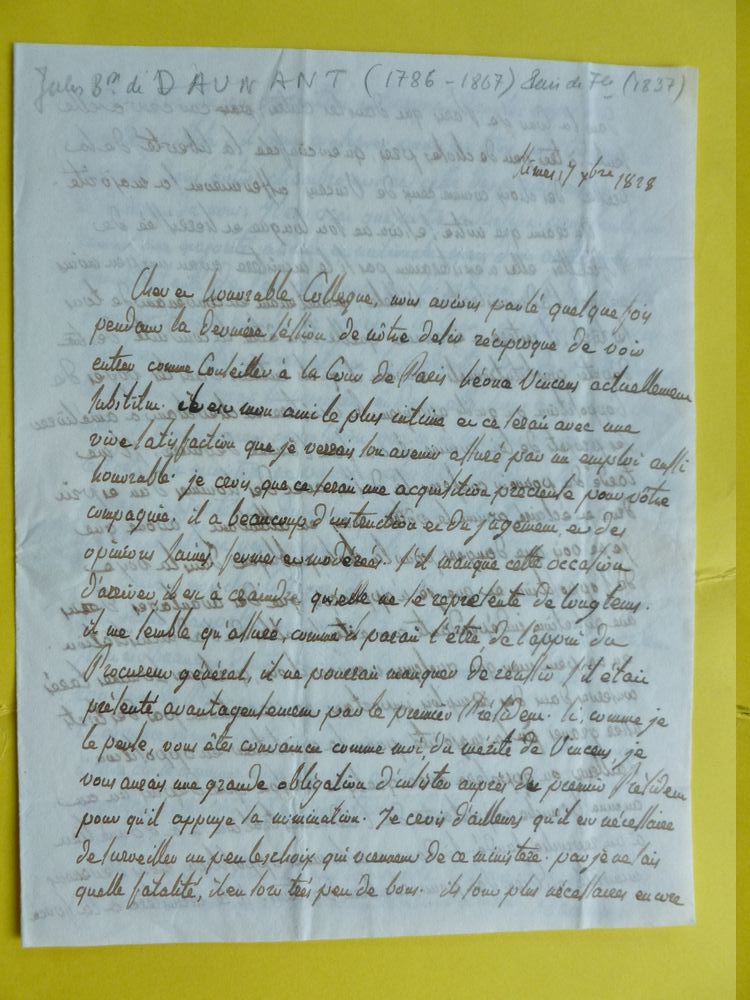 Jules Bon de DAUNANT (1786 - 1867) Pair de Fce (1837)
Nimes, 9 xbre 1828
Cher et honorable Collegue, nous avions parlé quelque fois
pendant la dernière session de nôtre desir réciproque de voir
entrer comme Conseiller à la Cour de Paris Léona Vincens actuellement
substitut. il est mon ami le plus intime et ce serait avec une
vive satisfaction que je verrais son avenir assuré par un emploi aussi
honorable. je crois que ce serait une acquisition précieuse pour vôtre
compagnie, il a beaucoup d'instruction et du jugement et des
opinions saines fermes et modérées. s'il manque cette occasion
d'arriver il est à craindre qu'elle ne se représente de longtems.
il me semble qu'assuré, comme il parait l'être, de l'appui du
Procureur général, il ne pourrait manquer de réussir s'il était
présenté avantageusement par le premier Président. Si, comme je
le pense, vous êtes convaincu comme moi du mérite de Vincens, je
vous aurais une grande obligation d'insister auprès du premier Président
pour qu'il appuye sa nomination. Je crois d'ailleurs qu'il est nécessaire
de surveiller un peu les choix qui viennent de ce ministère. par je ne sais
quelle fatalité, il en sort très peu de bons. ils sont plus nécessaires encore